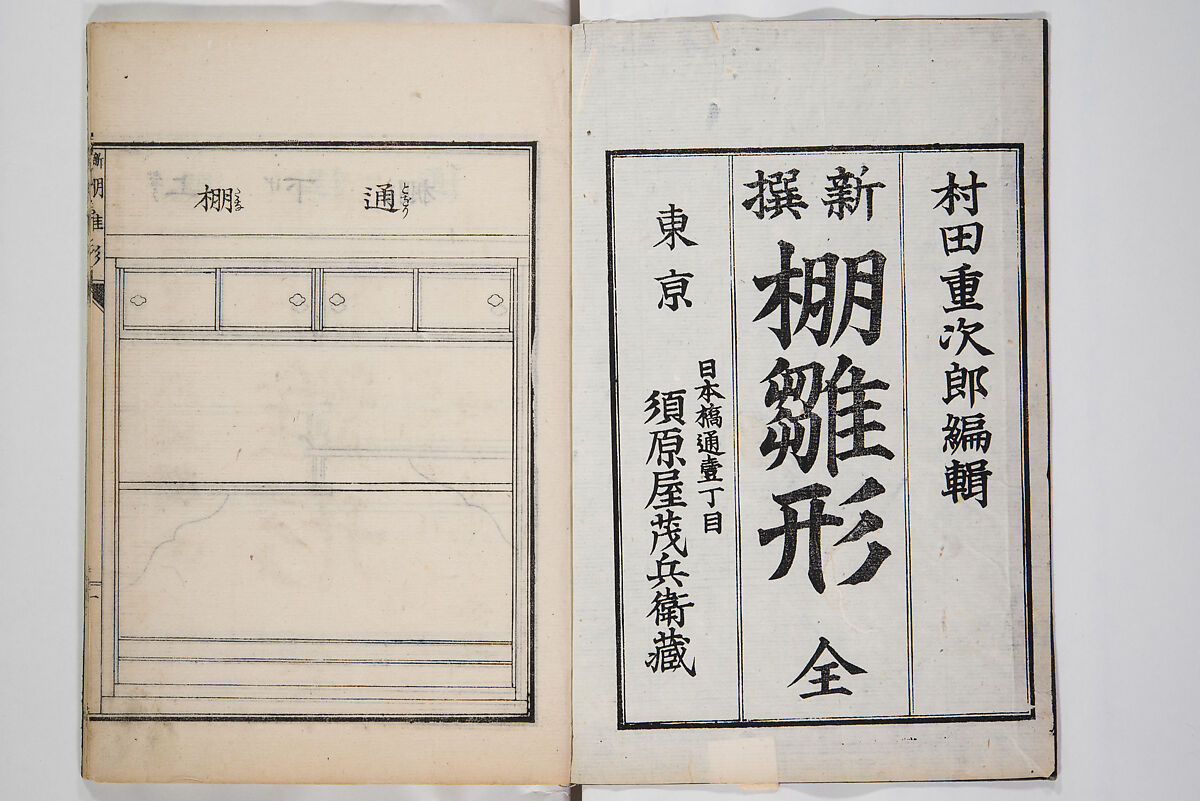 村田重次郎編輯
新撰
棚雛形 全
東京
日本橋通壹丁目
須原屋茂兵衛藏
通とをり
棚だな
新棚雛形
一